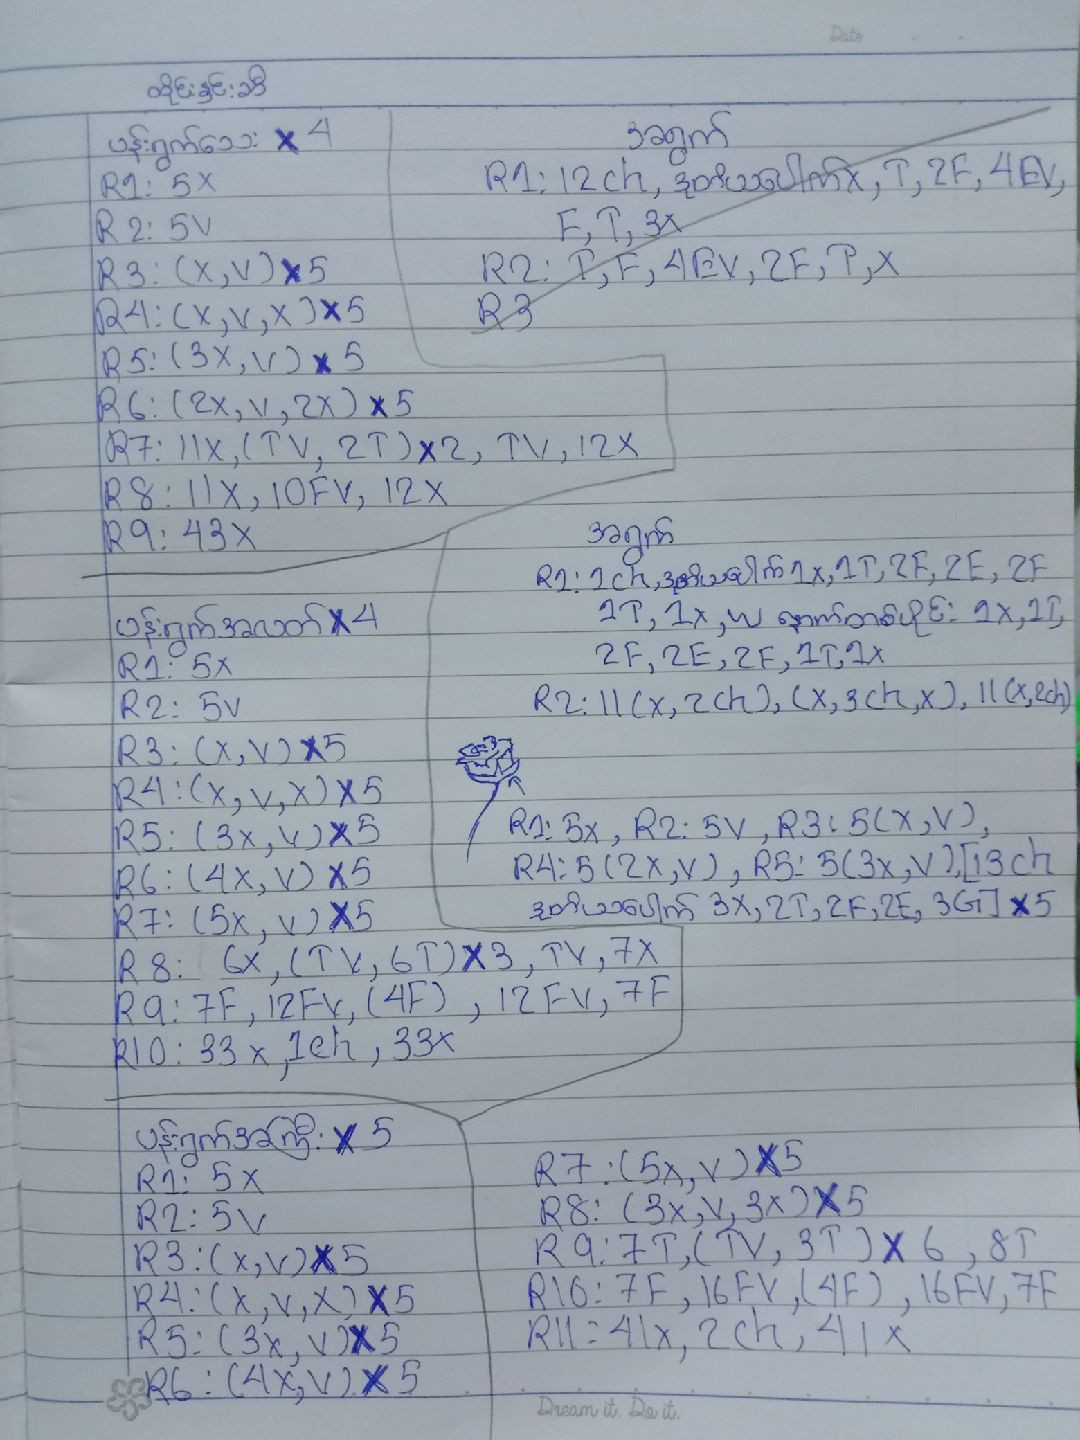 Date
ထိုင်းနှင်းဆီ
ပန်းရွက်သေး x 4
R1: 5x
R2: 5V
R3: (x,v) x 5
R4: (x,v,x) x 5
R5: (3x, v) x 5
R6: (2x, v, 2x) x 5
R7: 11x, (TV, 2T) x 2, TV, 12x
R8: 11x, 10FV, 12x
R9: 43x
အရွက်
R1: 12ch, ဒုတိယပေါက် x, T, 2F, 4EV,
F, T, 3x
R2: T, F, 4EV, 2F, T, x
R3
ပန်းရွက်အလတ် x 4
R1: 5x
R2: 5v
R3: (x,v) x 5
R4: (x,v,x) x 5
R5: (3x, v) x 5
R6: (4x, v) x 5
R7: (5x, v) x 5
R8: 6x, (TV, 6T) x 3, TV, 7x
R9: 7F, 12FV, (4F), 12FV, 7F
R10: 33x, 1ch, 33x
အရွက်
R1: 1ch, ဒုတိယပေါက် 1x, 1T, 2F, 2E, 2F
1T, 1x, w နောက်တစ်ပိုင်း 1x, 1T,
2F, 2E, 2F, 1T, 1x
R2: 11(x, 2ch), (x, 3ch, x), 11(x, 2ch)
R1: 5x, R2: 5V, R3: 5(x,V),
R4: 5(2x,V), R5: 5(3x,V), [13ch
ဒုတိယပေါက် 3x, 2T, 2F, 2E, 3G] x 5
ပန်းရွက်အကြီး x 5
R1: 5x
R2: 5V
R3: (x,v) x 5
R4: (x,v,x) x 5
R5: (3x, v) x 5
R6: (4x, v) x 5
R7: (5x, v) x 5
R8: (3x, v, 3x) x 5
R9: 7T, (TV, 3T) x 6, 8T
R10: 7F, 16FV, (4F), 16FV, 7F
R11: 41x, 2ch, 41x
Dream it. Do it.